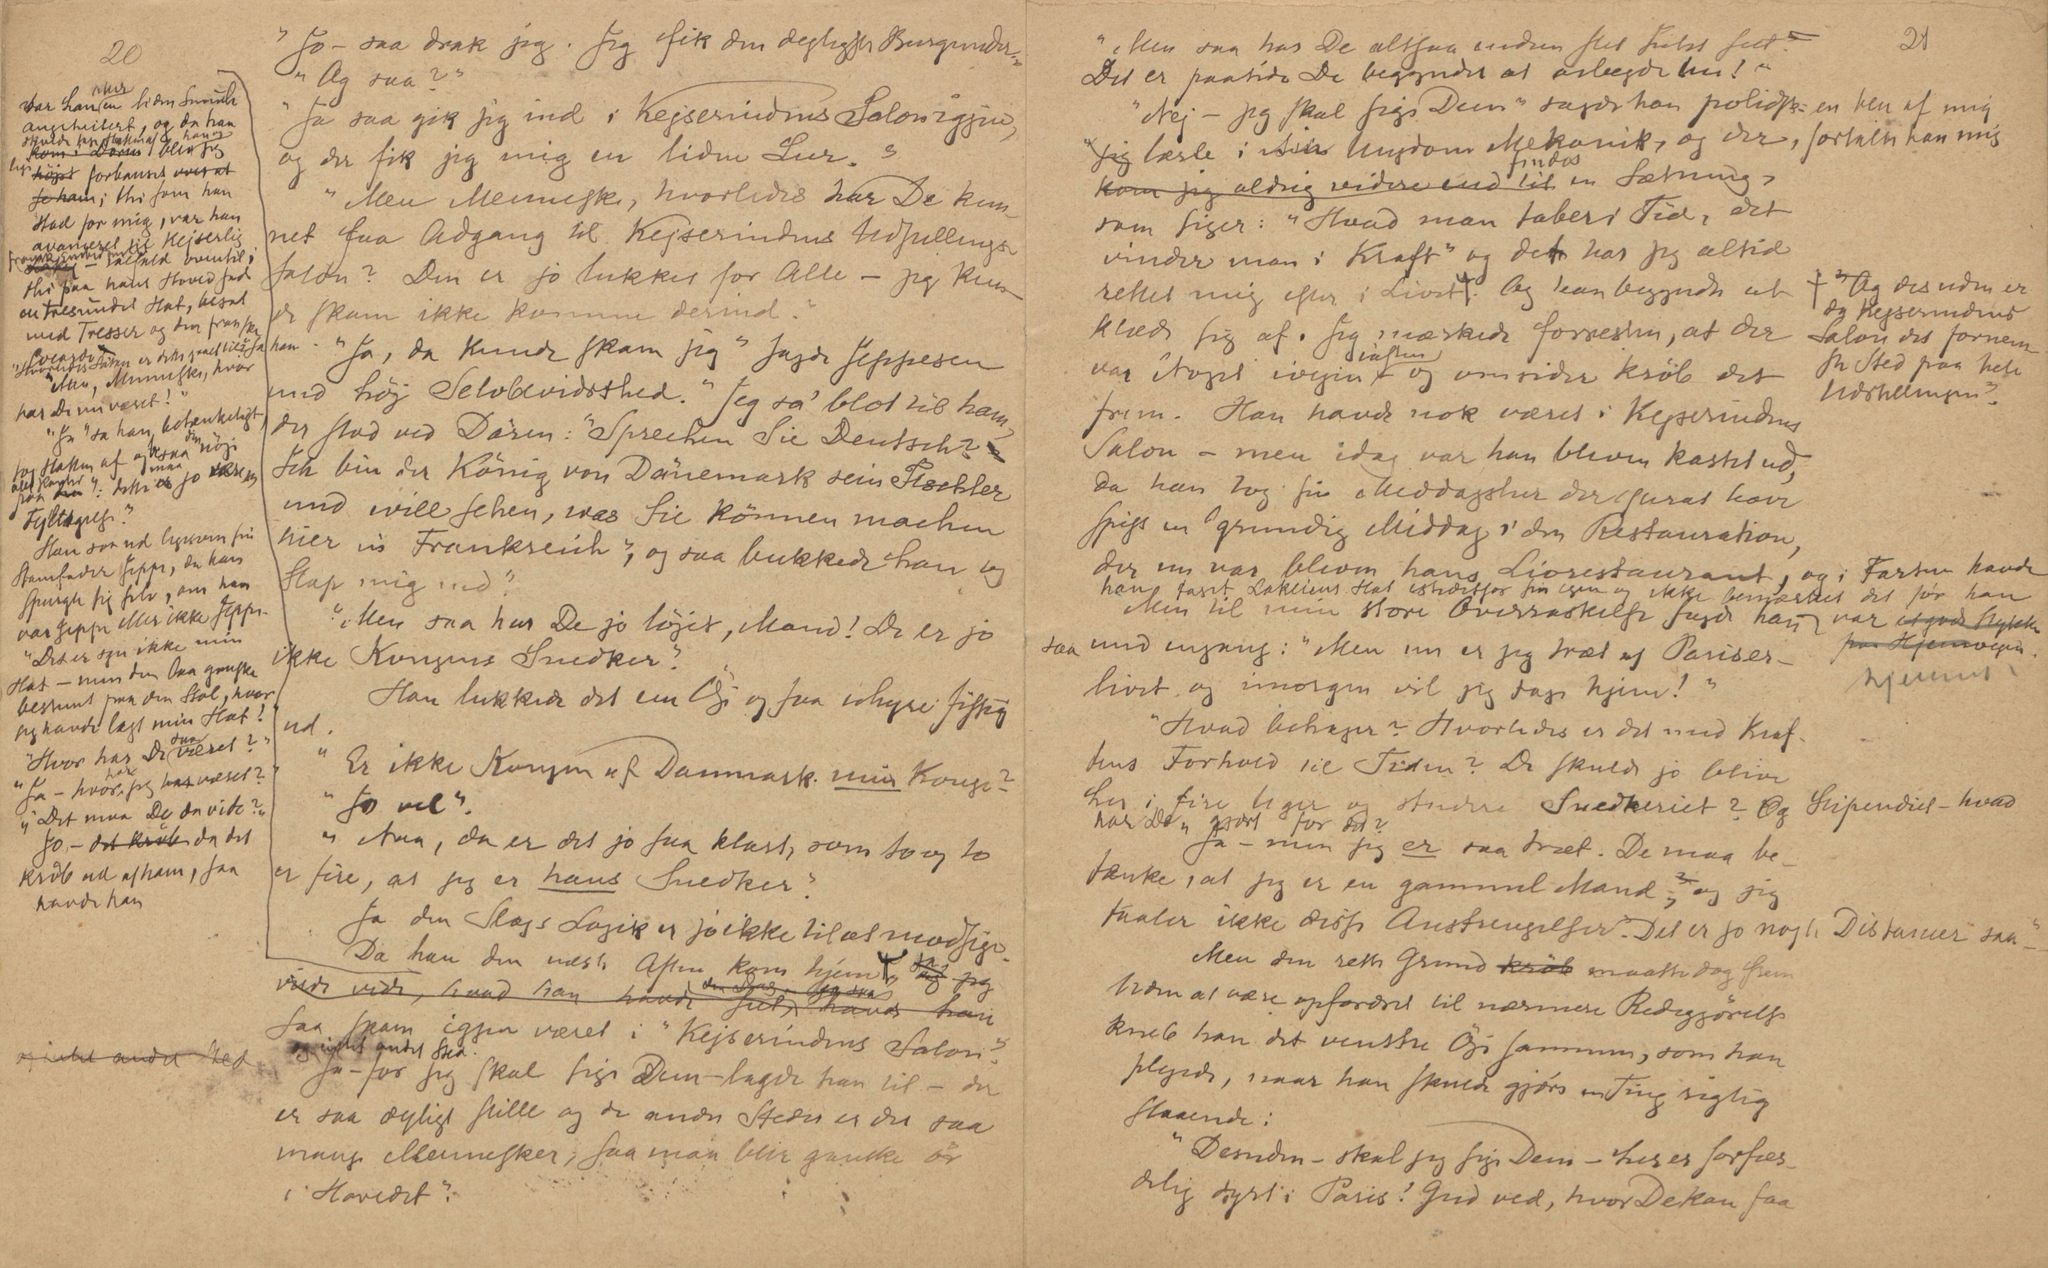 20
"Jo – saa drak jeg. Jeg fik den dejligste Burgunder –"
"Og saa?"
"Ja saa gik jeg ind i Kejserindens Salon igjen,
og der fik jeg mig en liden Lur."
"Men Menneske, hvorledes har De kun-
net faa Adgang til Kejserindens Udstillings-
salon? Den er jo lukket for Alle – jeg kun-
de skam ikke komme derind."
"Ja, da kunde skam jeg" sagde Jeppesen
med høj Selvbevidsthed. "Jeg sa' blot til ham,
der stod ved Døren: "Sprechen Sie Deutsch?
Ich bin der König von Dänemark sein Tischler
und will sehen, was Sie können machen
hier in Frankreich", og saa bukkede han og
slap mig ind."
"Men saa har De jo løjet, Mand! De er jo
ikke Kongens Snedker".
Han lukkede det ene Øje og saa uhyre fiffig
ud.
"Er ikke Kongen af Danmark min Konge?"
"Jo vel".
"Naa, da er det jo saa klart, som to og to
er fire, at jeg er hans Snedker."
Ja den Slags Logik er jo ikke til at modsige.
Da han den næste Aften kom hjem
vilde vide, hvad han havde set, havde han
saa skam igjen været i "Kejserindens Salon".
og intet andet Sted.
Ja – for jeg skal sige Dem – lagde han til – der
er saa dejligt stille og de andre Steder er der saa
mange Mennesker, saa man blir ganske ør
i Hovedet".
var han liden Smule
angeheitert, og da han
blev jeg
forbauset
; thi som han
stod for mig, var han
avanceret til Kejserlig
thi paa hans Hoved sad
en tresnudet Hat, besat
med Tresser og den franske
Cocarde
"Men, Menneske, hvor
har De nu været!"
"Ja" sa han, betænkeligt,
tog Hatten af og saa nøje
paa den: dette maa jo være en
Fejltagelse?
Han saa ud ligesom sin
Stamfader Jeppe, da han
spurgte sig selv, om han
var Jeppe eller ikke Jeppe.
"Det er sgu ikke min
Hat – men den laa ganske
bestemt paa den Stol, hvor
jeg havde lagt min Hat!"
"Hvor har De saa været?"
"Ja – hvor jeg har været?"
"Det maa De da vide?"
Jo – det krøb da det
krøb ud af ham, saa
havde han
og intet andet Sted
21
"Men saa har De altsaa endnu slet Intet set?
Det er paatide De begynder at arbejde nu!"
"Nej – jeg skal sige Dem" sagde han polidsk – en ven af mig
læste i sin Ungdom Mekanik, og der, fortalte han mig
findes
kom jeg aldrig videre end til en Sætning,
som siger: "Hvad man taber i Tid, det
vinder man i Kraft" og det har jeg altid
rettet mig efter i Livet †. Og han begyndte at
klæde sig af. Jeg mærkede forresten, at der
var Noget ivejen og omsider krøb det
frem. Han havde nok været i Kejserindens
Salon – men idag var han bleven kastet ud,
da han tog sin Middagslur der efterat have
spist en grundig Middag i den Restauration,
der nu var bleven hans Livrestaurant, og i Farten havde
han taget Lakeiens Hat istedetfor sin egen og ikke bemærket det før han
var et godt Stykke
paa Hjemvejen.
hjemme
Men til min store Overraskelse sagde han
saa med engang: "Men nu er jeg træt af Pariser-
livet og imorgen vil jeg tage hjem!"
"Hvad behager? Hvorledes er det med Kraf-
tens Forhold til Tiden? De skulde jo blive
her i fire Uger og studere Snedkeriet? Og Stipendiet – hvad
har De gjort for det?
"Ja – men jeg er saa træt. De maa be-
tænke, at jeg er en gammel Mand, og jeg
taaler ikke disse Anstrengelser. Det er jo nogle Distancer saa –"
Men den rette Grund krøb maatte dog frem
uden at være opfordret til nærmere Redegjørelse
kneb han det venstre Øje sammen, som han
plejede, naar han skulde gjøre en Ting rigtig
slaaende:
"Desuden – skal jeg sige Dem – her er forfær-
delig dyrt i Paris! Gud ved, hvor De kan faa
† "Og desuden er
da Kejserindens
Salon det fornem-
ste Sted paa hele
Udstillingen".